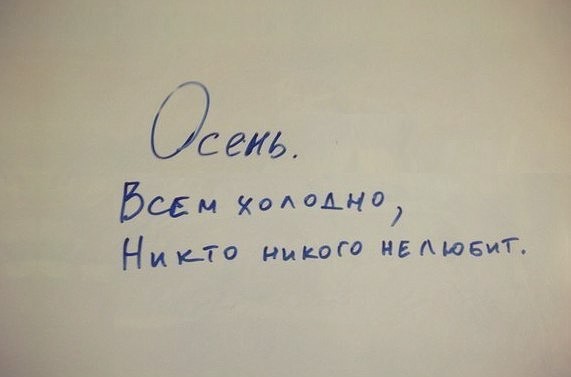 Осень.
Всем холодно,
Никто никого не любит.